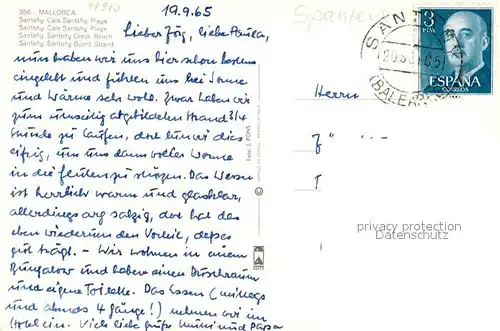 356 - MALLORCA
Santañy. Cala Santañy. Playa
Santañy. Cala Santañy. Plage
Santañy. Santañy Creek. Beach
Santañy. Santañy Bucht. Strand
19.9.65
Lieber Jörg, liebe Paula,
nun haben wir uns hier schon bestens
eingelebt und fühlen uns bei Sonne
und Wärme sehr wohl. Zwar haben wir
zum umseitig abgebildeten Strand 3/4
Stunde zu laufen, dort tun wir dies
eifrig, um uns dann voller Wonne
in die Fluten zu stürzen. Das Wasser
ist herrlich warm und glasklar,
allerdings arg salzig, doch hat das
eben wiederum den Vorteil, daß es
gut trägt. - Wir wohnen in einem
Bungalow und haben einen Duschraum
und eigene Toilette. Das Essen (mittags
und abends 4 Gänge!) nehmen wir im
Hotel ein. Viele liebe Grüße Mutti und Papa
Foto: J. PONS
Spanien
SANTAÑY
20 SE 65
(BALEARES)
3
PTAS
ESPAÑA
CORREOS
Herrn
privacy protection
Datenschutz